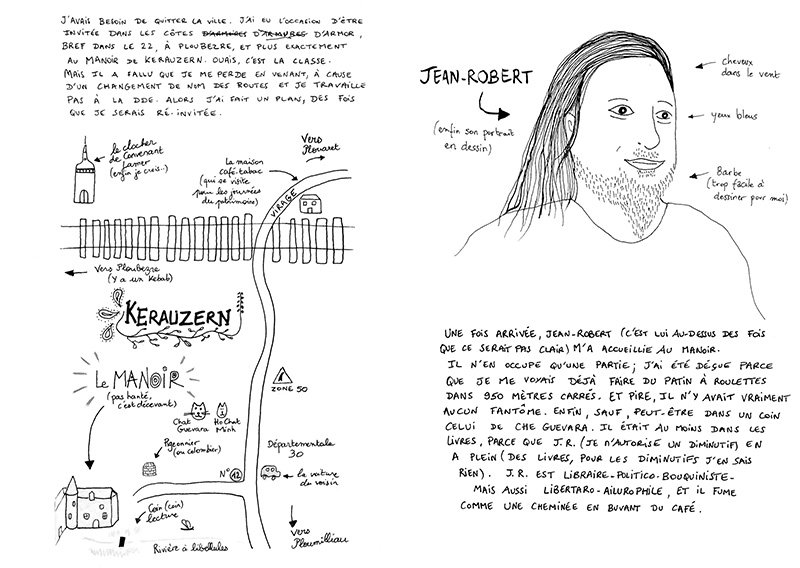 J'AVAIS BESOIN DE QUITTER LA VILLE. J'AI EU L'OCCASION D'ÊTRE
INVITÉE DANS LES CÔTES D'ARMOIRES D'ARMURES D'ARMOR,
BREF DANS LE 22, À PLOUBEZRE, ET PLUS EXACTEMENT
AU MANOIR DE KERAUZERN. OUAIS, C'EST LA CLASSE.
MAIS IL A FALLU QUE JE ME PERDE EN VENANT, À CAUSE
D'UN CHANGEMENT DE NOM DES ROUTES ET JE TRAVAILLE
PAS À LA DDE. ALORS J'AI FAIT UN PLAN, DES FOIS
QUE JE SERAIS RÉ-INVITÉE.
le clocher
de Convenant
famer
(enfin je crois..)
Vers
Plouaret
La maison
café-tabac
(qui se visite
pour les journées
du patrimoine)
VIRAGE
Vers Ploubezre
(Y a un Kebab)
KERAUZERN
Le MANOIR
(pas hanté,
c'est décevant)
ZONE 50
Chat
Guevara
Ho Chat
Minh
Pigeonnier
(ou colombier)
Départementale
30
N° 12
la voiture
du voisin
Coin (coin)
lecture
Rivière à libellules
Vers
Ploumilliau
JEAN-ROBERT
(enfin son portrait
en dessin)
cheveux
dans le vent
yeux bleus
Barbe
(trop facile à
dessiner pour moi)
UNE FOIS ARRIVÉE, JEAN-ROBERT (C'EST LUI AU-DESSUS DES FOIS
QUE CE SERAIT PAS CLAIR) M'A ACCUEILLIE AU MANOIR.
IL N'EN OCCUPE QU'UNE PARTIE; J'AI ÉTÉ DÉÇUE PARCE
QUE JE ME VOYAIS DÉJÀ FAIRE DU PATIN À ROULETTES
DANS 950 MÈTRES CARRÉS. ET PIRE, IL N'Y AVAIT VRAIMENT
AUCUN FANTÔME. ENFIN, SAUF, PEUT-ÊTRE DANS UN COIN
CELUI DE CHE GUEVARA. IL ÉTAIT AU MOINS DANS LES
LIVRES, PARCE QUE J.R. (JE N'AUTORISE UN DIMINUTIF) EN
A PLEIN (DES LIVRES, POUR LES DIMINUTIFS J'EN SAIS
RIEN). J.R. EST LIBRAIRE-POLITICO-BOUQUINISTE-
MAIS AUSSI LIBERTARO-AILUROPHILE, ET IL FUME
COMME UNE CHEMINÉE EN BUVANT DU CAFÉ.